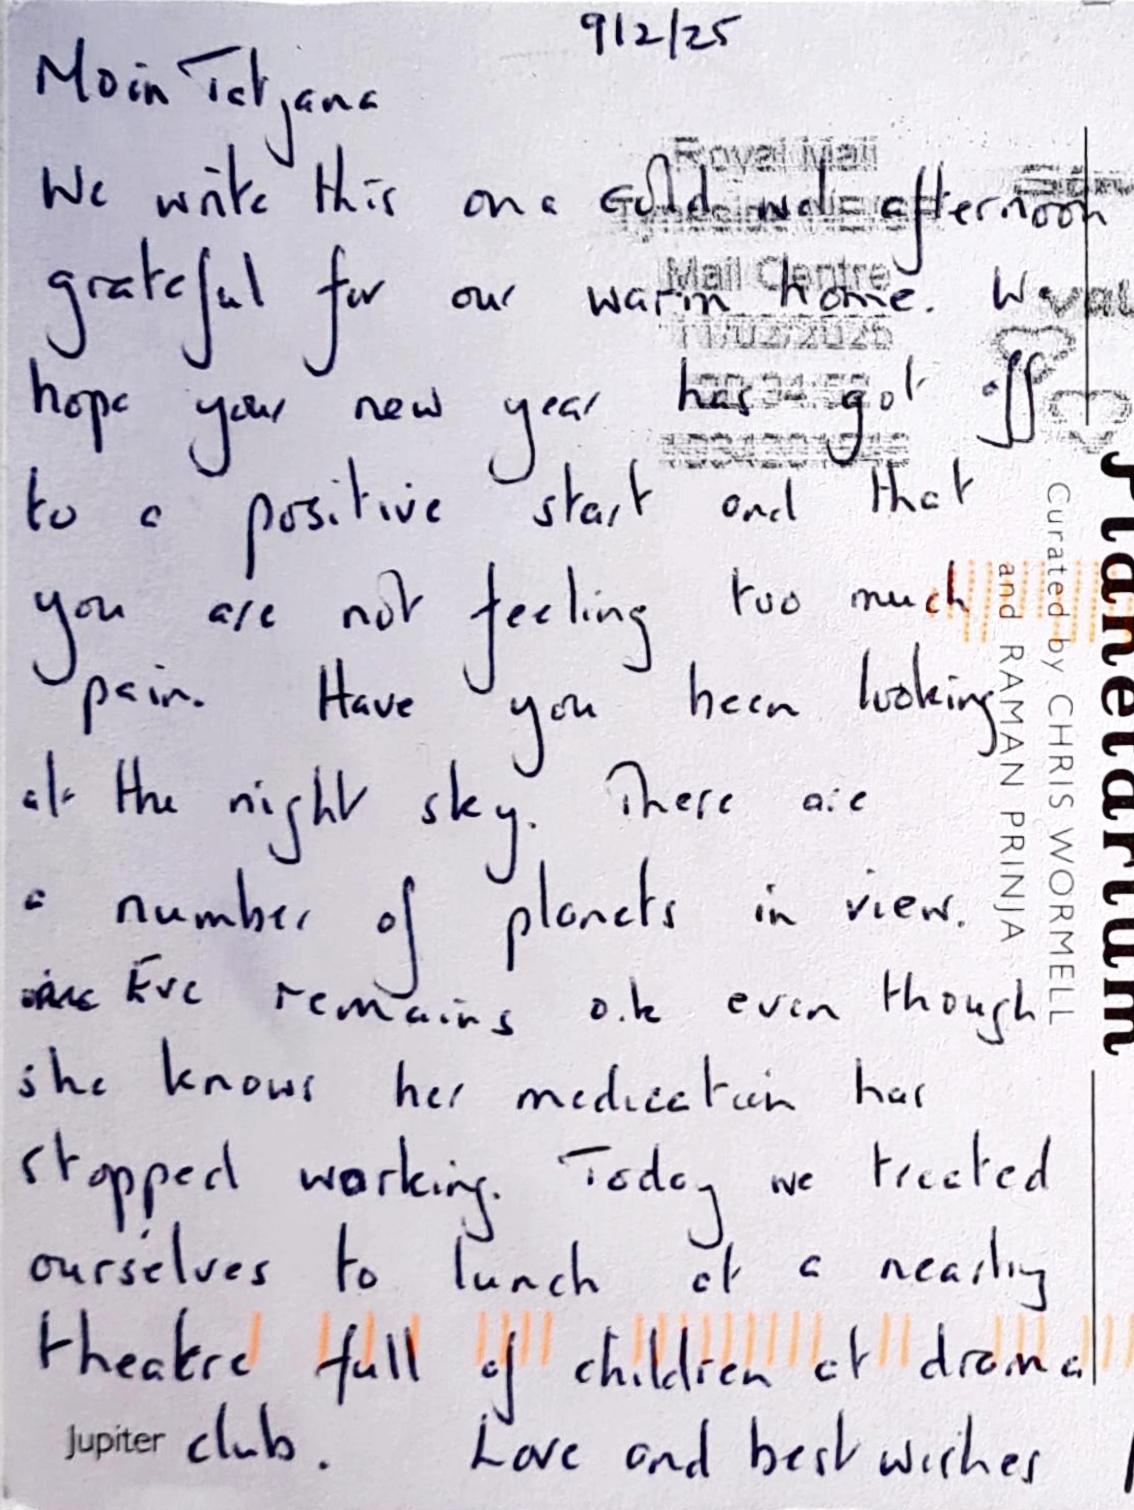 9/2/25
Moin Tatjana
We write this on a cold wet afternoon
grateful for our warm home. We
hope your new year has got off
to a positive start and that
you are not feeling too much
pain. Have you been looking
at the night sky. There are
a number of planets in view.
Eve remains o.k even though
she knows her medication has
stopped working. Today we treated
ourselves to lunch at a nearby
theatre full of children at drama
club. Love and best wishes
Jupiter
Royal Mail
Mail Centre
11/02/2025
Planetarium
Curated by CHRIS WORMELL
and RAMAN PRINJA